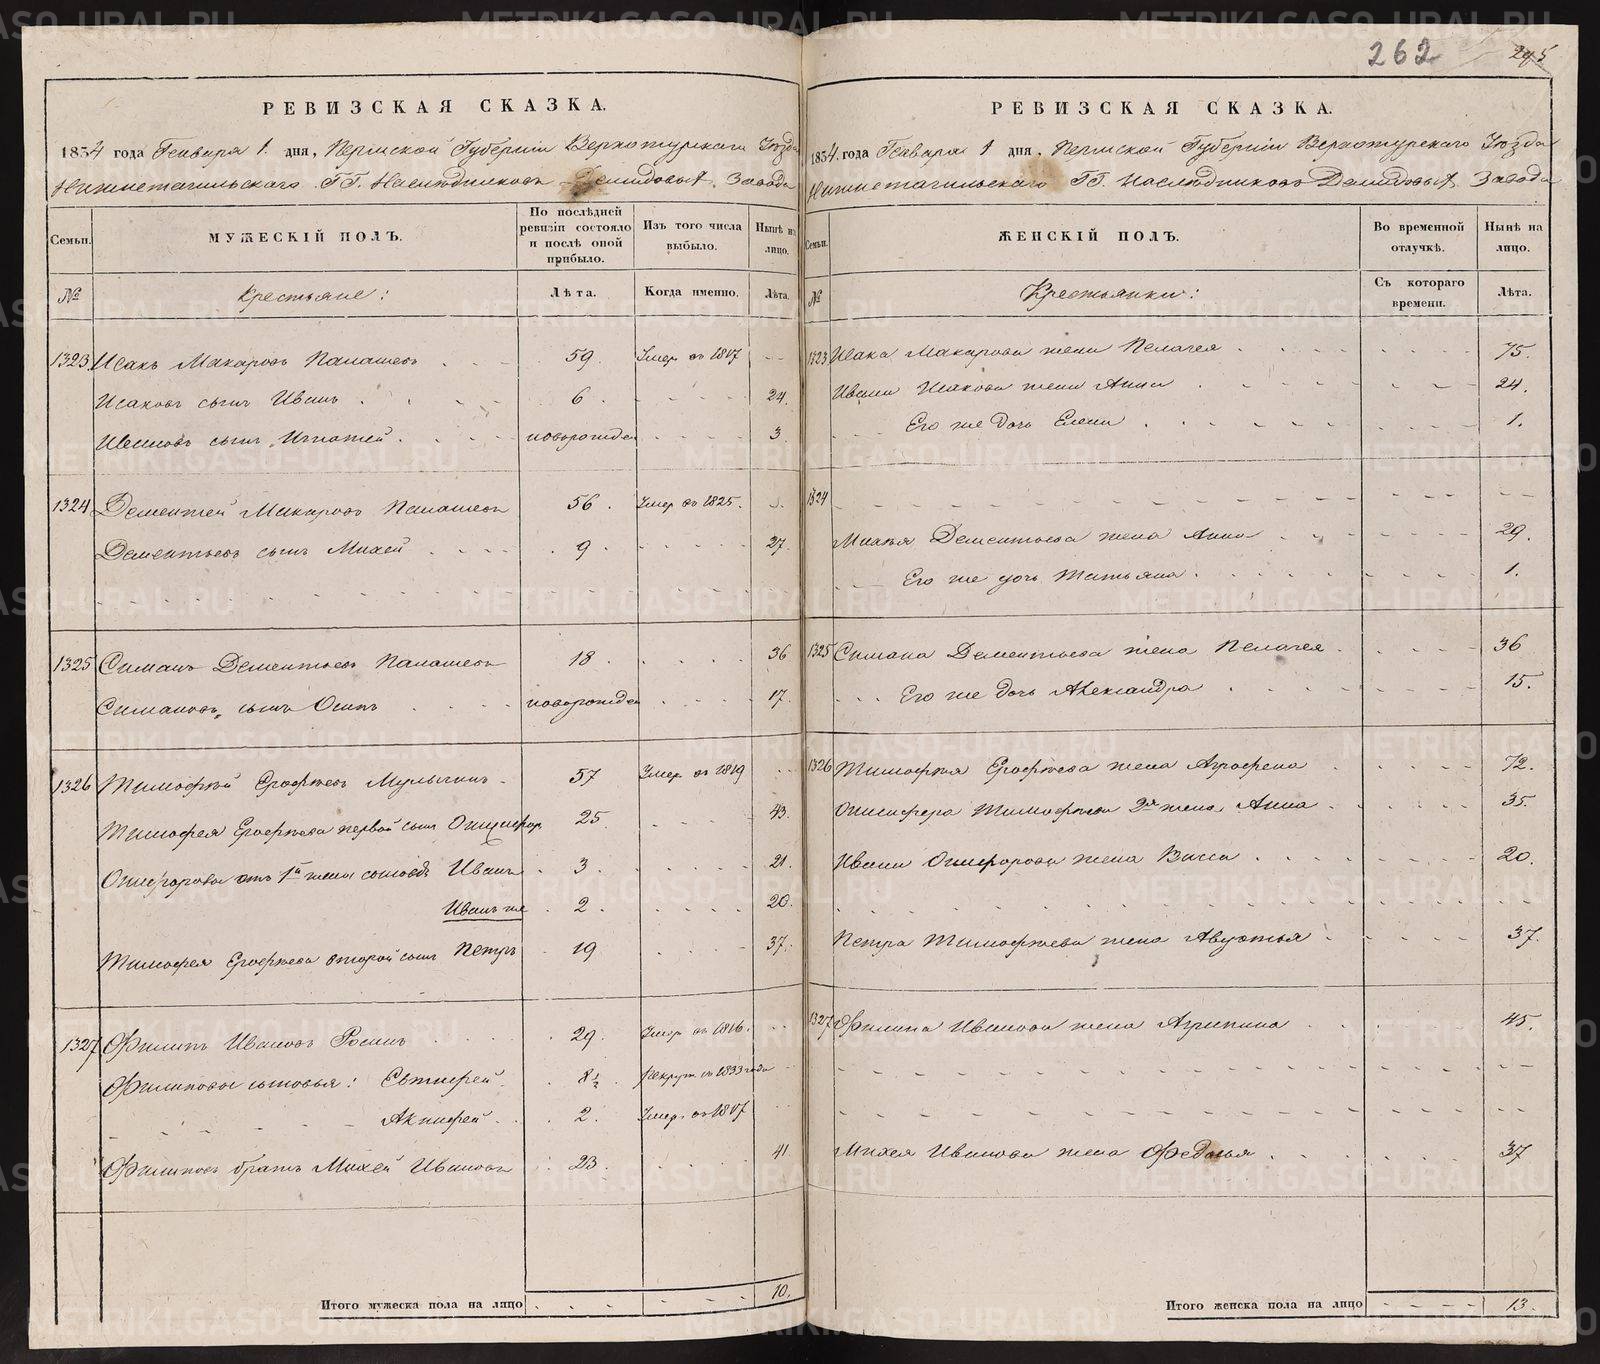 262 295
РЕВИЗСКАЯ СКАЗКА.
1834 года Генваря 1. дня, Пермской Губерніи Верхотурскаго Уѣзда
Нижнетагильскаго Г.Г. Наслѣдниковъ Демидовыхъ Завода
Семьи. МУЖЕСКІЙ ПОЛЪ. По послѣдней ревизіи состояло и послѣ оной прибыло. Изъ того числа выбыло. Нынѣ на лицо.
№ Крестьяне: Лѣта. Когда именно. Лѣта.
1323 Исакъ Макаровъ Палашевъ 59. Умер въ 1817
Исаковъ сынъ Иванъ 6 24.
Ивановъ сынъ Игнатей новорожден 3
1324 Дементей Макаровъ Палашевъ 56. Умер въ 1825.
Дементьевъ сынъ Михей 9 27.
1325 Симанъ Дементьевъ Палашевъ 18 36
Симановъ сынъ Осипъ новорожден 17.
1326 Тимофѣй Ерофѣевъ Мулычинъ 57 Умер въ 1819
Тимофея Ерофѣева первой сынъ Онисифор 25 43.
Онисифорова отъ 1й жены сыновья Иванъ 3 21.
Иванъ же 2. 20.
Тимофея Ерофѣева второй сынъ Петръ 19 37.
1327 Филипъ Ивановъ Росинъ 29 Умер въ 1816.
Филиповы сыновья: Евтифей 8½ Рекрут въ 1833 года
Актифей 2. Умер въ 1817
Филиповъ братъ Михей Ивановъ 23. 41
Итого мужеска пола на лицо 10.
РЕВИЗСКАЯ СКАЗКА.
1834. года Генваря 1 дня, Пермской Губерніи Верхотурскаго Уѣзда
Нижнетагильскаго Г.Г. Наслѣдниковъ Демидовыхъ Завода
Семьи. ЖЕНСКІЙ ПОЛЪ. Во временной отлучкѣ. Нынѣ на лицо.
№ Крестьянки: Съ котораго времени. Лѣта.
1323 Исака Макарова жена Пелагея 75.
Ивана Исакова жена Анна 24.
Его же дочь Елена 1.
1324
Михея Дементьева жена Анна 29.
Его же дочь Татьяна 1.
1325 Симана Дементьева жена Пелагея 36
Его же дочь Александра 15.
1326 Тимофѣя Ерофѣева жена Агрофена 72.
Онисифора Тимофѣева 2я жена Анна 35.
Ивана Онисифорова жена Васса 20.
Петра Тимофѣева жена Авдотья 37.
1327 Филипа Иванова жена Агрипина 45.
Михея Иванова жена Федосья 37
Итого женска пола на лицо 13.
METRIKI.GASO-URAL.RU